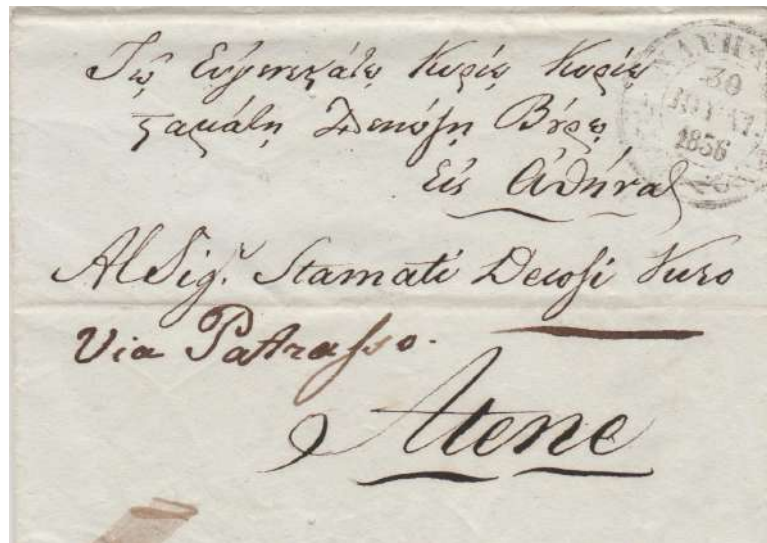 Τῷ Εὐγενεστάτῳ Κυρίῳ Κυρίῳ
ςαμάτη Δεκόζη Βούρῳ
Εἰς Ἀθήνας
30
1836
Al Sig.r Stamati Decosi Vuro
Via Patrasso.
Atene